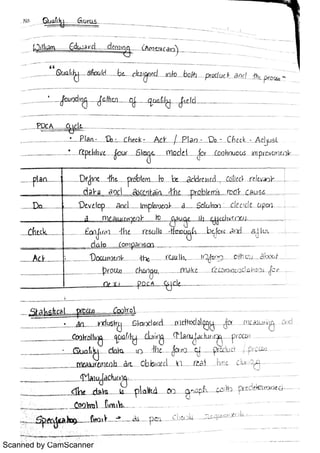 No Quality Gurus
William Edward deming (American)
"Quality should be designed into both product and the process"
• founding father of quality field
PDCA Cycle
• Plan - Do - Check - Act / Plan - Do - Check - Adjust
• repetitive four stage model for continuous improvement
plan Define the problem to be addressed, collect relevant
data and ascertain the problem's root cause
Do Develop and implement a solution decide upon
a measurement to gauge its effectiveness
Check Confirm the results through before and after
data comparison
Act Document the results, inform others about
process changes, make recommendations for
next PDCA cycle
Statistical process Control
• An industry standard methodology for measuring and
controlling quality during manufacturing process
• Quality data in the form of product / process
measurements are obtained in real time during
manufacturing
The data is plotted on graph with predetermined
control limits
as per
Scanned by CamScanner